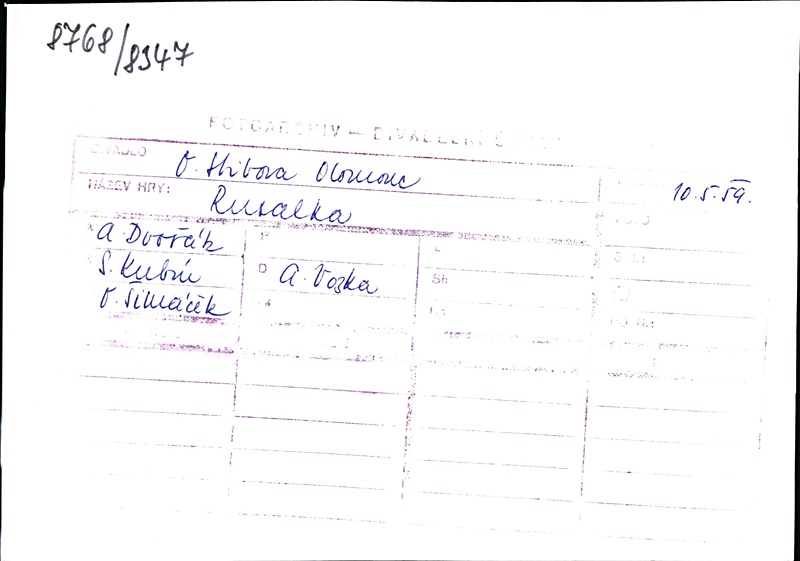 8768/8347
FOTOARCHIV — DIVADELNÍ
DIVADLO O. Stibora Olomouc
10.5.59.
NÁZEV HRY: Rusalka
A. Dvořák
S. Kubín
O. Šimáček
P
D A. Vozka
L
Sh